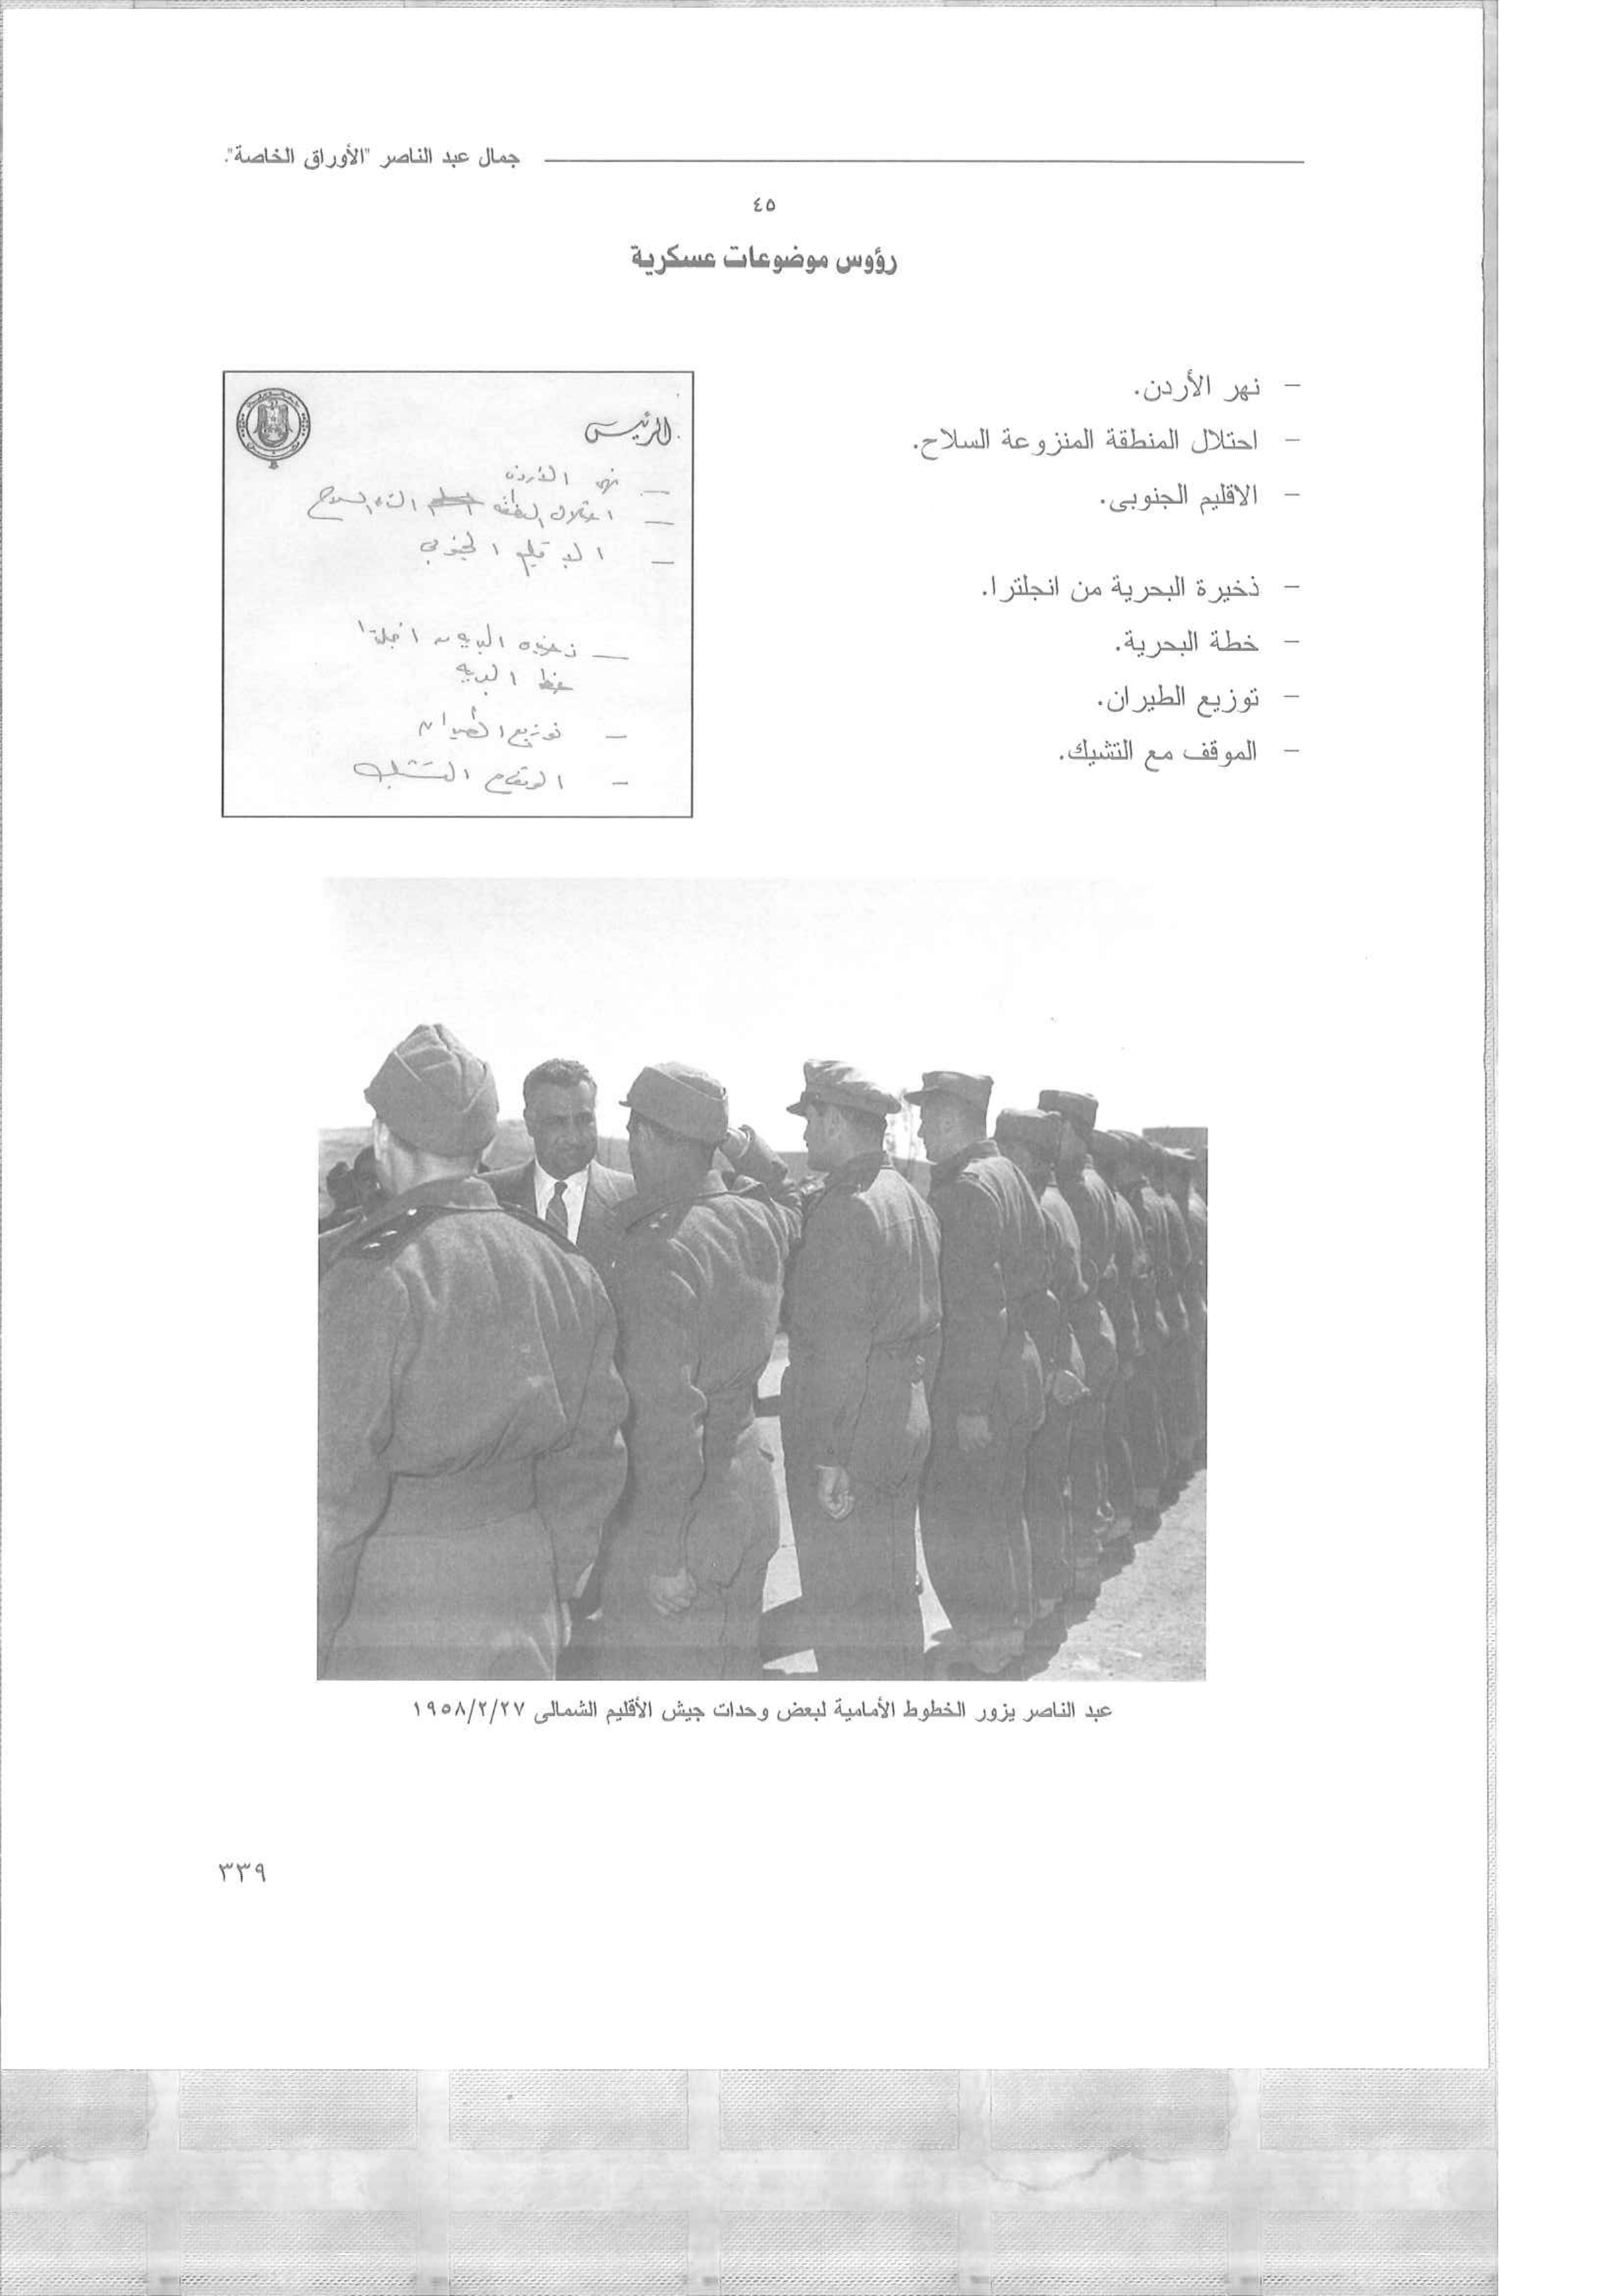 جمال عبد الناصر "الأوراق الخاصة".
٤٥
رؤوس موضوعات عسكرية
– نهر الأردن.
– احتلال المنطقة المنزوعة السلاح.
– الاقليم الجنوبى.
– ذخيرة البحرية من انجلترا.
– خطة البحرية.
– توزيع الطيران.
– الموقف مع التشيك.
الرئيس
– نهر الأردن
– احتلال المنطقة السلاح
– الاقليم الجنوبى
– ذخيره البحريه من انجلترا
خطة البحريه
– توزيع الطيران
– الموقف مع التشيك
عبد الناصر يزور الخطوط الأمامية لبعض وحدات جيش الأقليم الشمالى ١٩٥٨/٢/٢٧
٣٣٩